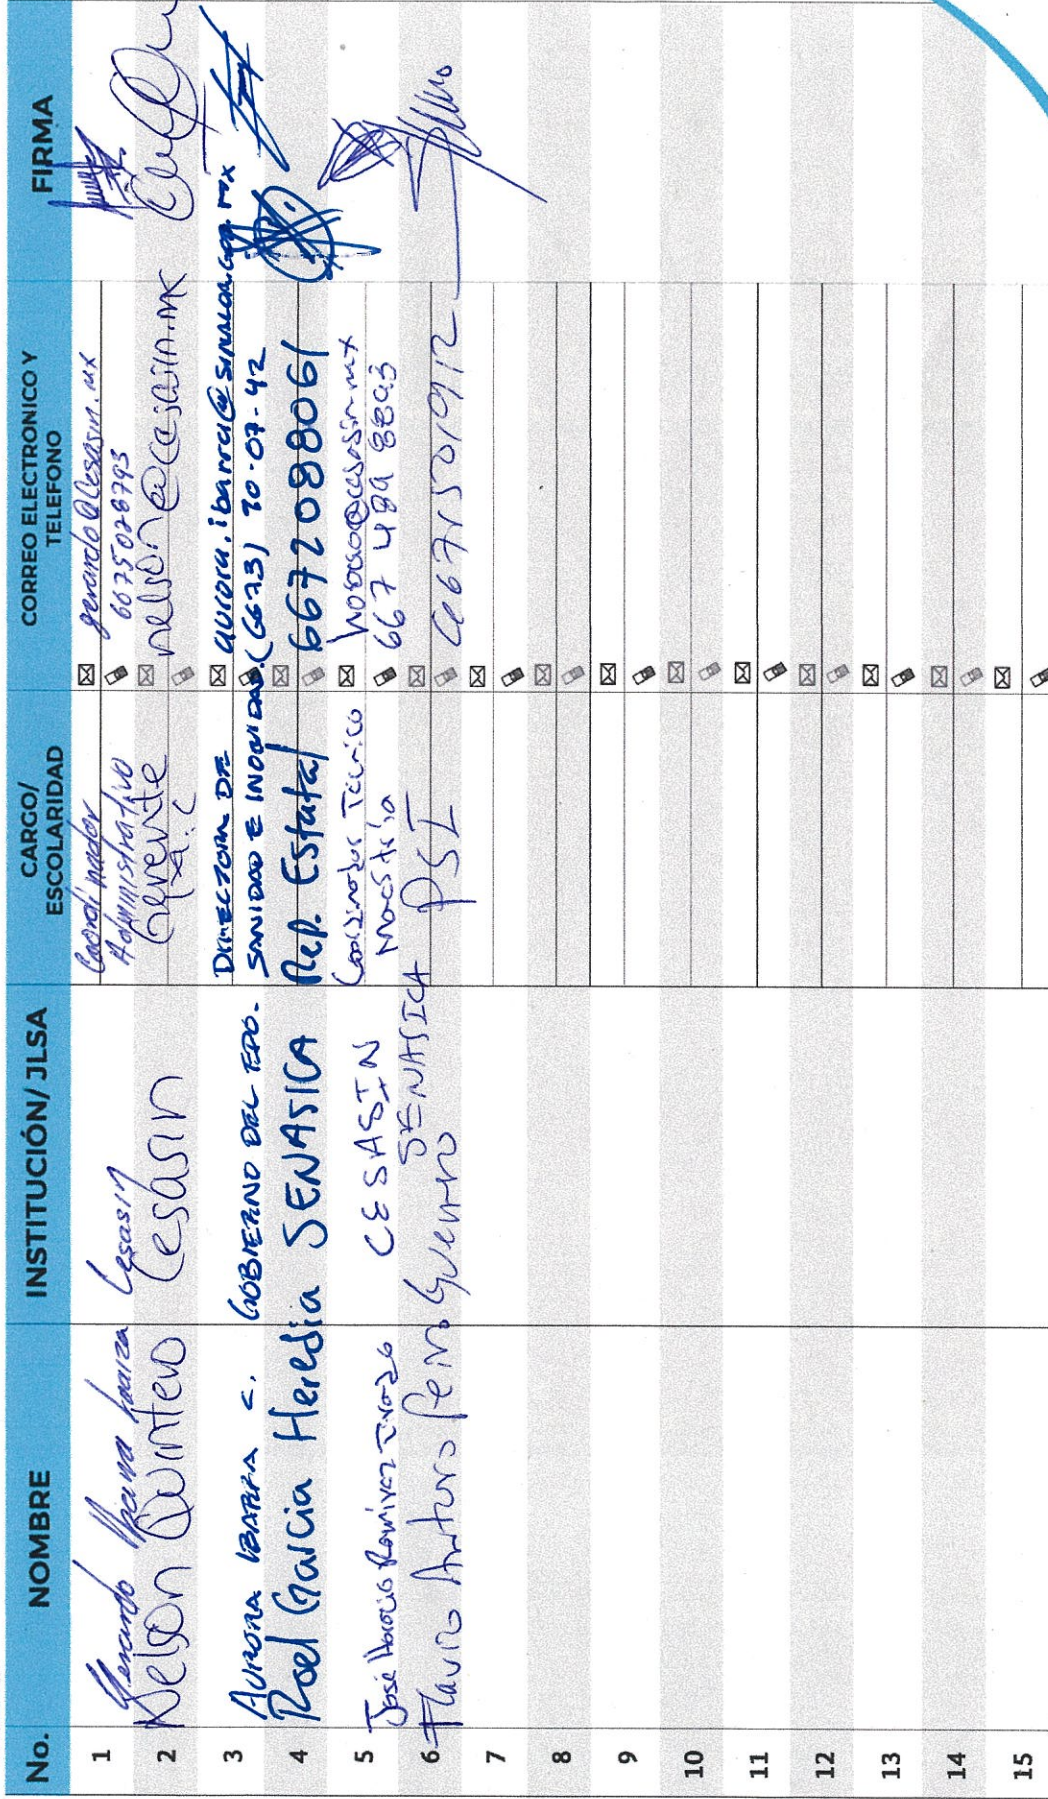 No. NOMBRE INSTITUCIÓN/ JLSA CARGO/ ESCOLARIDAD CORREO ELECTRONICO Y TELEFONO FIRMA
1 Gerardo Loaiza Cesasin Coordinador Administrativo gerardo@Cesasin.mx 6675028793
2 Nelson Quintero Cesasin Gerente nelson@cesasin.mx
3 AURORA IBARRA C. GOBIERNO DEL EDO. DIRECTORA DE SANIDAD E INOCUIDAD. aurora.ibarra@sinaloa.gob.mx (6673) 70-07-42
4 Roel Garcia Heredia SENASICA Rep. Estatal 6672088061
5 José Horacio Ramírez CESASIN Coordinador Técnico Maestría horacio@cesasin.mx 667 489 8893
6 Flavio Arturo Peiro Guerrero SENASICA PSI 6671501912
7
8
9
10
11
12
13
14
15